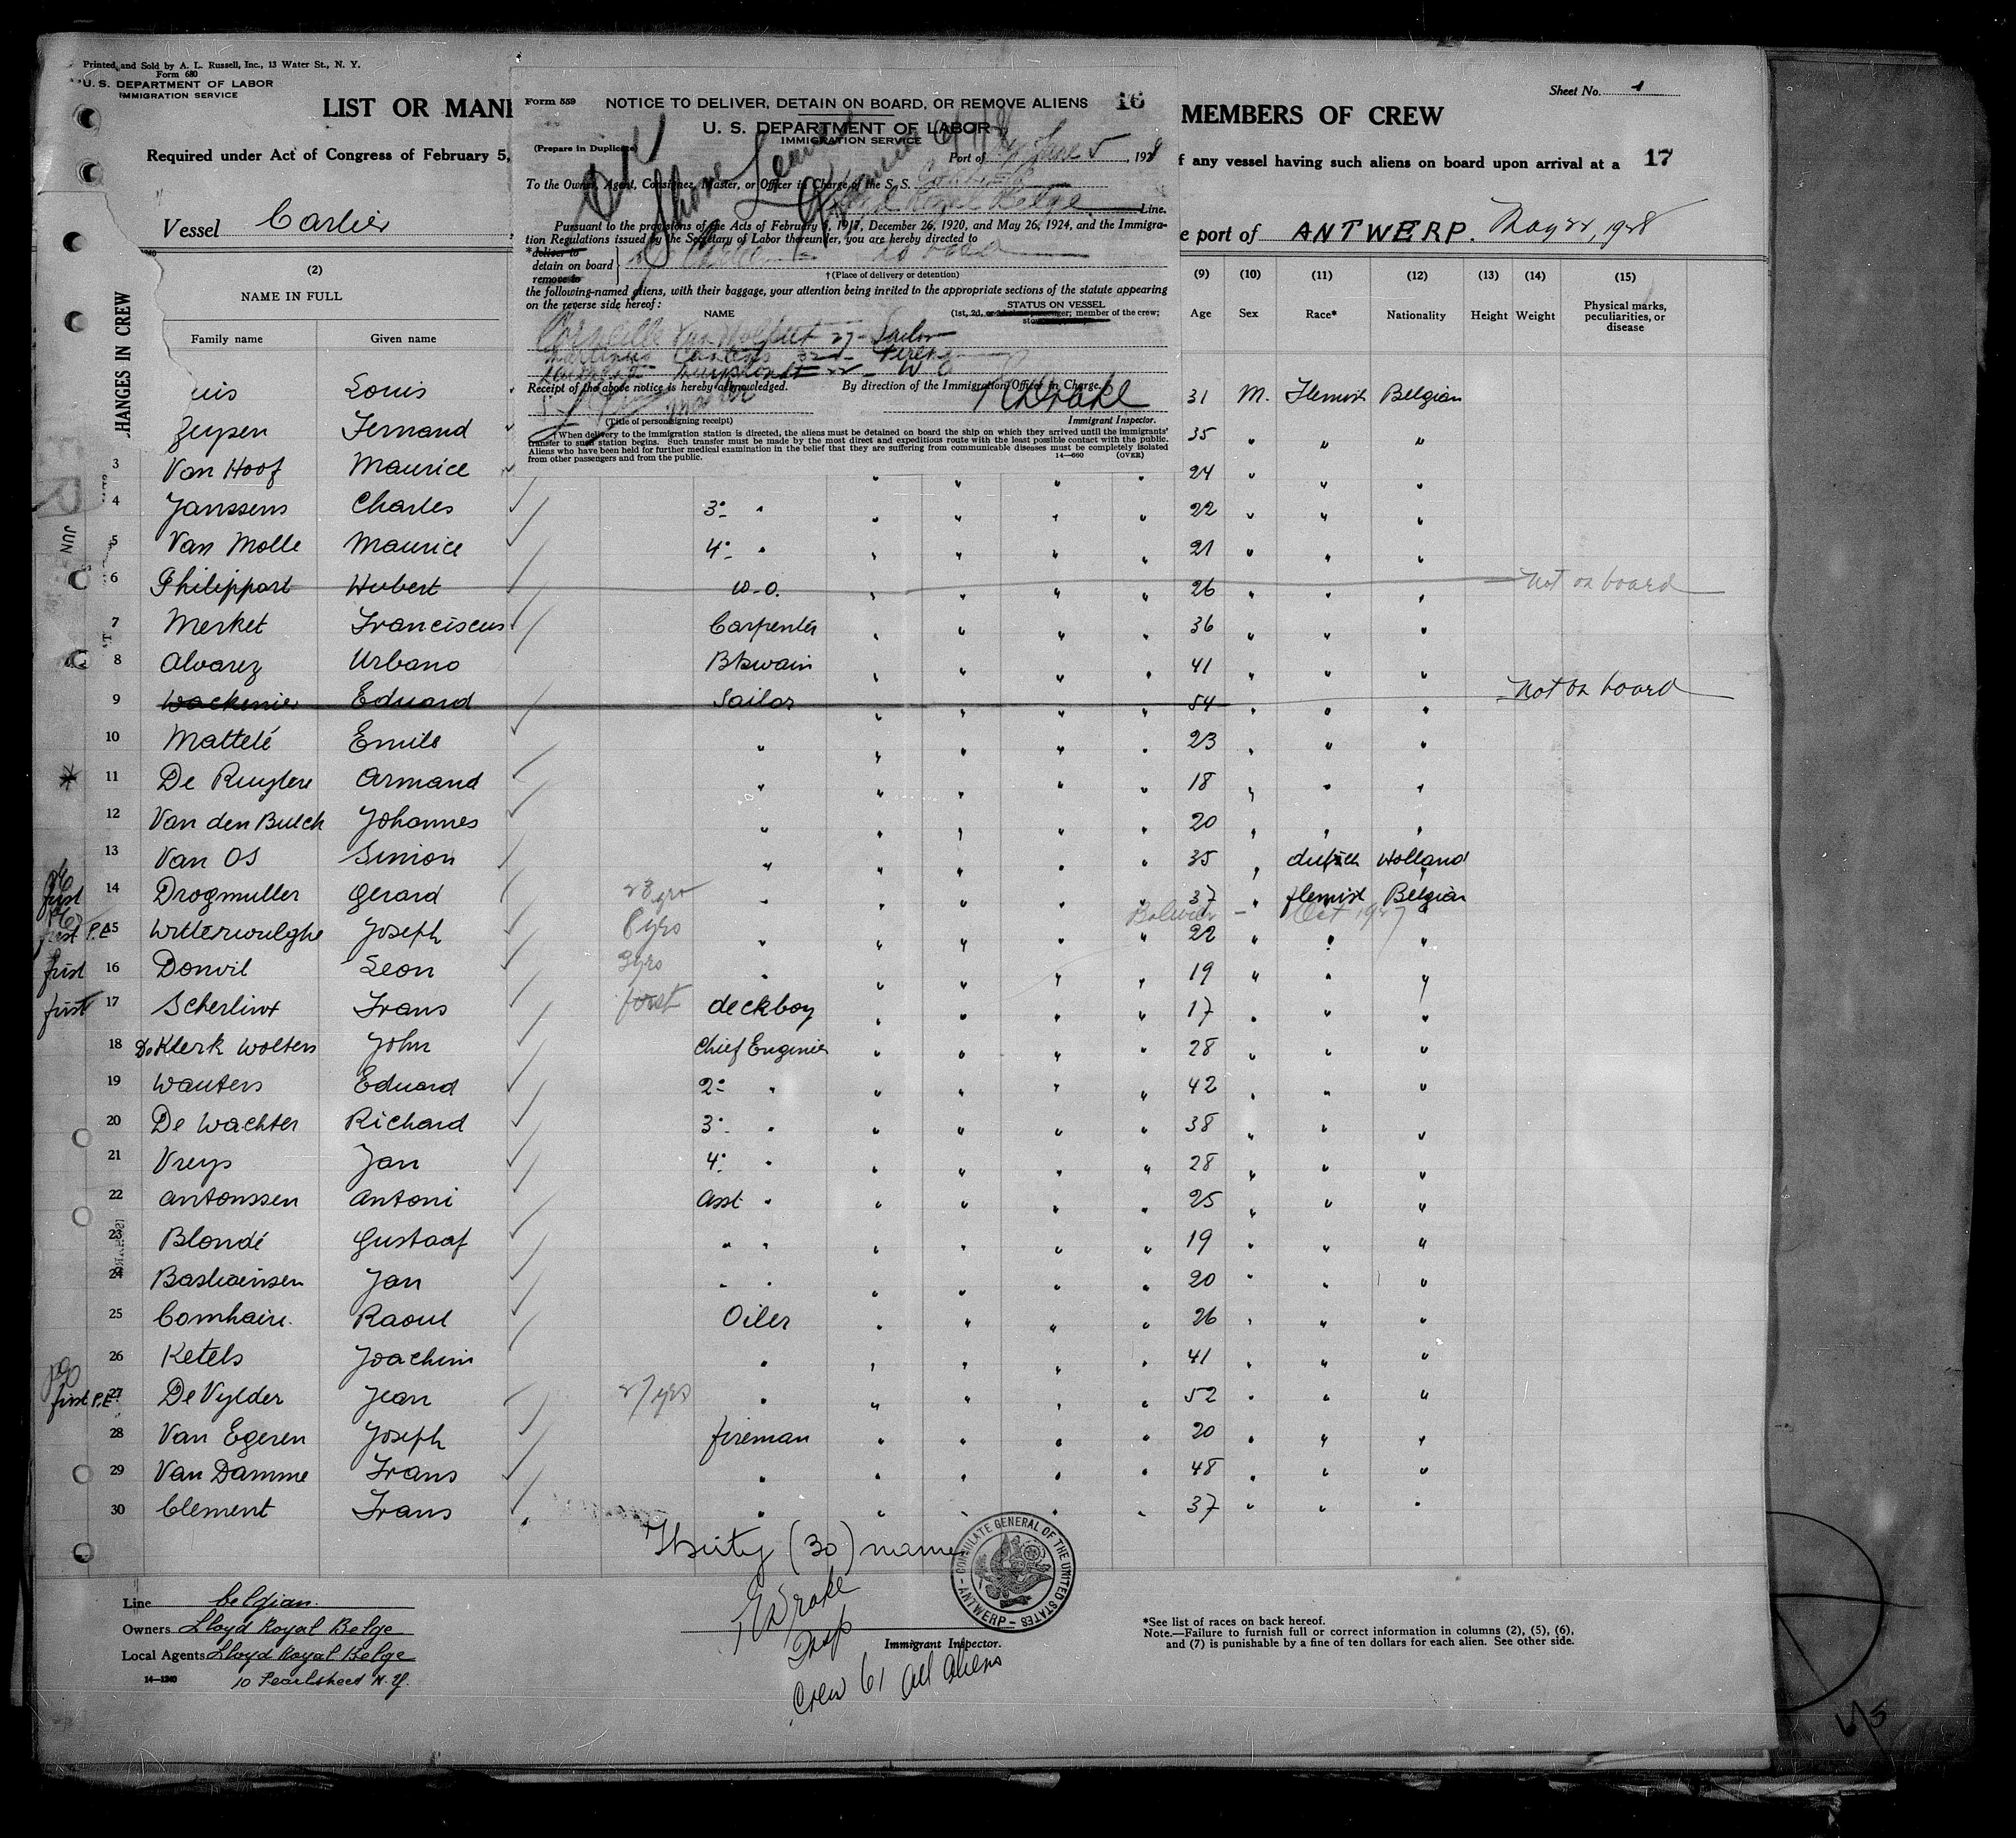 Printed and Sold by A. L. Russell, Inc., 13 Water St., N. Y.
Form 680
U. S. DEPARTMENT OF LABOR
IMMIGRATION SERVICE
LIST OR MANI
MEMBERS OF CREW
Sheet No. 1
Required under Act of Congress of February 5,
f any vessel having such aliens on board upon arrival at a 17
Vessel Carlier
e port of ANTWERP. May 22, 1928
Form 559 NOTICE TO DELIVER, DETAIN ON BOARD, OR REMOVE ALIENS 16
U. S. DEPARTMENT OF LABOR
IMMIGRATION SERVICE
(Prepare in Duplicate)
Port of NY June 5, 1928
To the Owner, Agent, Consignee, Master, or Officer in Charge of the S. S. Carlier
Lloyd Royal Belge Line.
Pursuant to the provisions of the Acts of February 5, 1917, December 26, 1920, and May 26, 1924, and the Immigra-
tion Regulations issued by the Secretary of Labor thereunder, you are hereby directed to
*deliver to
detain on board
remove to
† (Place of delivery or detention)
the following-named aliens, with their baggage, your attention being invited to the appropriate sections of the statute appearing
on the reverse side hereof:
NAME STATUS ON VESSEL
(1st, 2d, or 3d class passenger; member of the crew;
27 - Sailor
Martinus 32 - Firem
22 - W O
Receipt of the above notice is hereby acknowledged. By direction of the Immigration Officer in Charge.
Master Drake
(Title of person signing receipt) Immigrant Inspector.
†When delivery to the immigration station is directed, the aliens must be detained on board the ship on which they arrived until the immigrants'
transfer to such station begins. Such transfer must be made by the most direct and expeditious route with the least possible contact with the public.
Aliens who have been held for further medical examination in the belief that they are suffering from communicable diseases must be completely isolated
from other passengers and from the public. 14—660 (OVER)
HANGES IN CREW
(2) (9) (10) (11) (12) (13) (14) (15)
NAME IN FULL Age Sex Race* Nationality Height Weight Physical marks, peculiarities, or disease
Family name Given name
uis Louis 31 M. Flemish Belgian
Zeypen Fernand 35 " " "
3 Van Hoof Maurice 24 " " "
4 Janssens Charles 3° " 22 " " "
5 Van Molle Maurice 4° " 21 " " "
6 Philippart Hubert W.O. 26 " " " not on board
7 Merket Franciscus Carpenter 36 " " "
8 Alvarez Urbano Btswain 41 " " "
9 Wackenier Eduard Sailor 54 " " " not on board
10 Mattelé Emile " 23 " " "
11 De Ruytere Armand " 18 " " "
12 Van den Bulck Johannes " 20 " " "
13 Van Os Simion " 35 " dutch Holland
first 14 Drogmuller Gerard 28 yrs " 37 " flemish Belgian
Oct 1927
first P.E. 15 Witterwulghe Joseph 8 yrs " 22 " " "
first 16 Donvil Leon 3 yrs " 19 " " "
first 17 Scherlinx Frans first deckboy 17 " " "
18 De Klerk Wolters John Chief Enginier 28 " " "
19 Wauters Eduard 2° " 42 " " "
20 De Wachter Richard 3° " 38 " " "
21 Vreys Jan 4° " 28 " " "
22 Antonssen Antoni Asst " 25 " " "
23 Blondé Gustaaf " " 19 " " "
24 Bastiaensen Jan " " 20 " " "
25 Comhaire Raoul Oiler 26 " " "
26 Ketels Joachim " 41 " " "
first P.E. 27 De Vylder Jean 27 yrs " 52 " " "
28 Van Egeren Joseph fireman 20 " " "
29 Van Damme Frans " 48 " " "
30 Clement Frans " 37 " " "
Thirty (30) names
CONSULATE GENERAL OF THE UNITED STATES - ANTWERP -
Drake
Insp
Immigrant Inspector.
Crew 61 all aliens
Line belgian.
Owners Lloyd Royal Belge
Local Agents Lloyd Royal Belge
14—1240 10 Pearlstreet N.Y.
*See list of races on back hereof.
Note.—Failure to furnish full or correct information in columns (2), (5), (6),
and (7) is punishable by a fine of ten dollars for each alien. See other side.
6/5